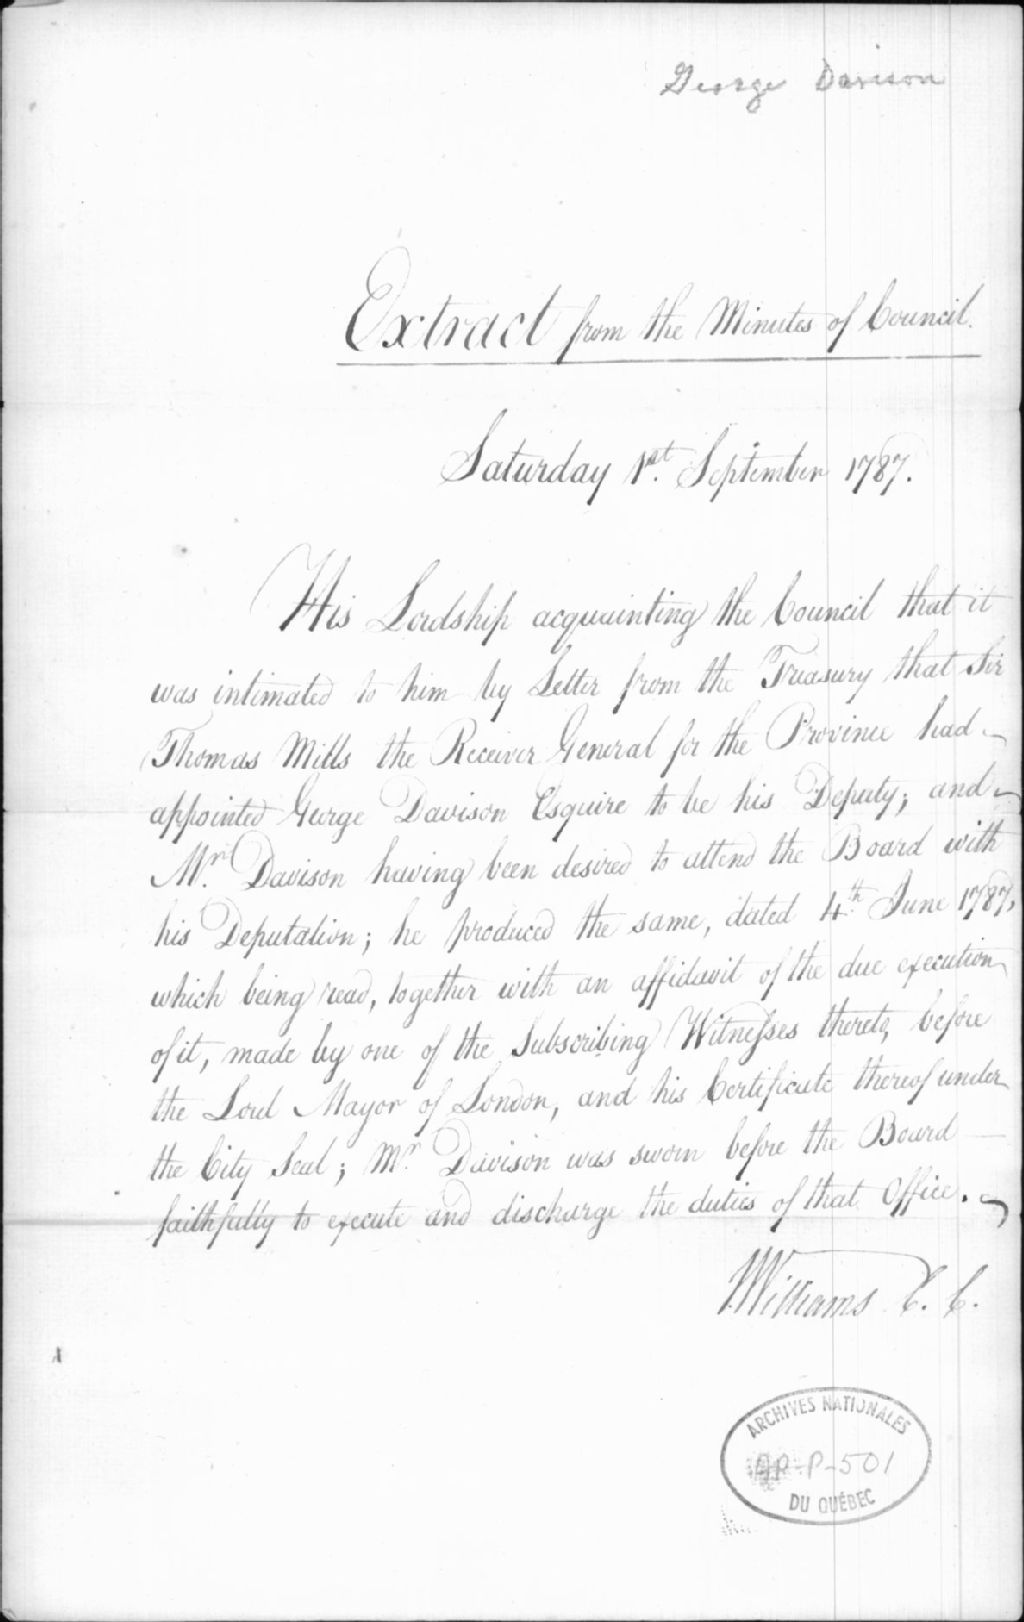 George Davison
Extract from the Minutes of Council.
Saturday 1st. September 1787.
His Lordship acquainting the Council that it
was intimated to him by Letter from the Treasury that Sir
Thomas Mills the Receiver General for the Province had
appointed George Davison Esquire to be his Deputy; and
Mr. Davison having been desired to attend the Board with
his Deputation; he produced the same, dated 4th. June 1787,
which being read, together with an affidavit of the due execution
of it, made by one of the Subscribing Witnesses thereto, before
the Lord Mayor of London, and his Certificate thereof under
the City Seal; Mr. Davison was sworn before the Board —
faithfully to execute and discharge the duties of that Office.
JWilliams C. C.
ARCHIVES NATIONALES
AP-P-501
DU QUÉBEC